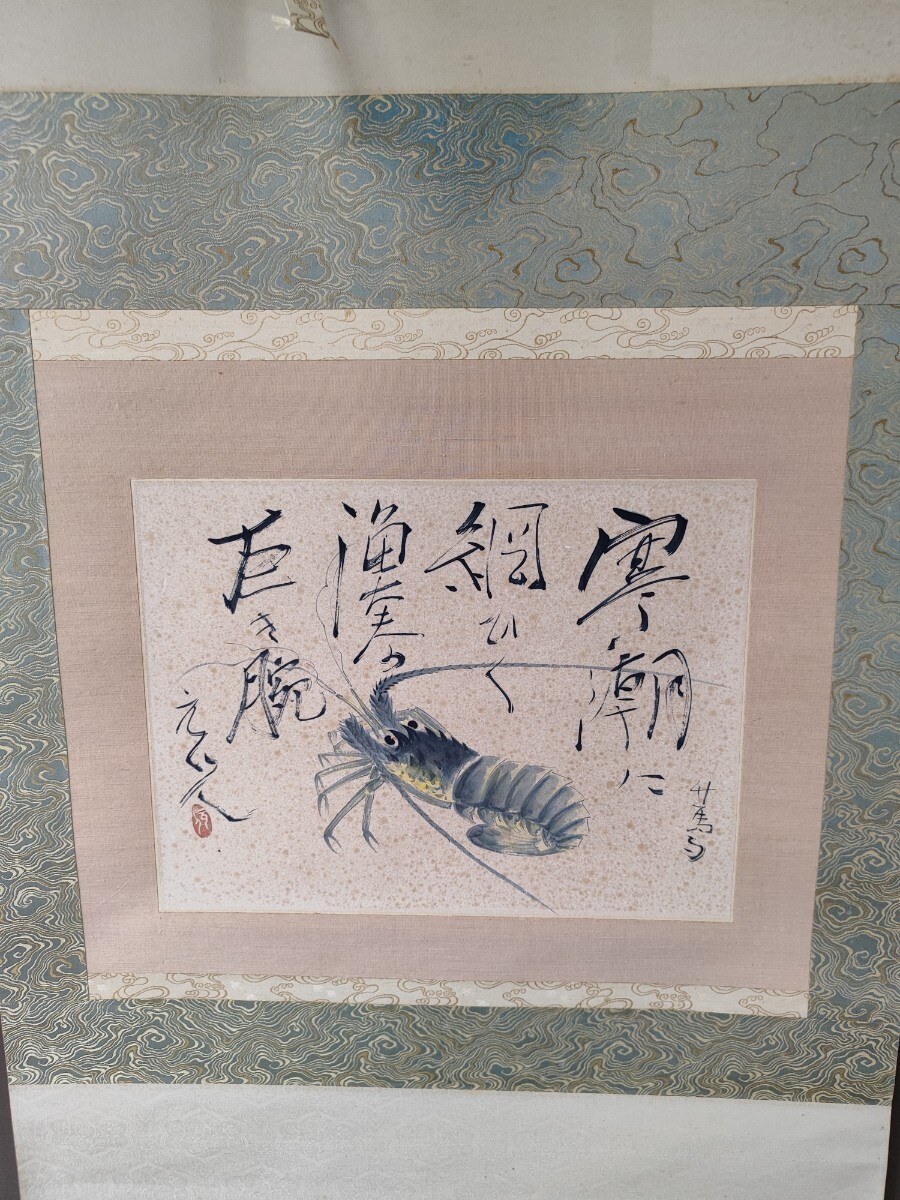 寒潮に
網ひく
漁夫の
巨き腕